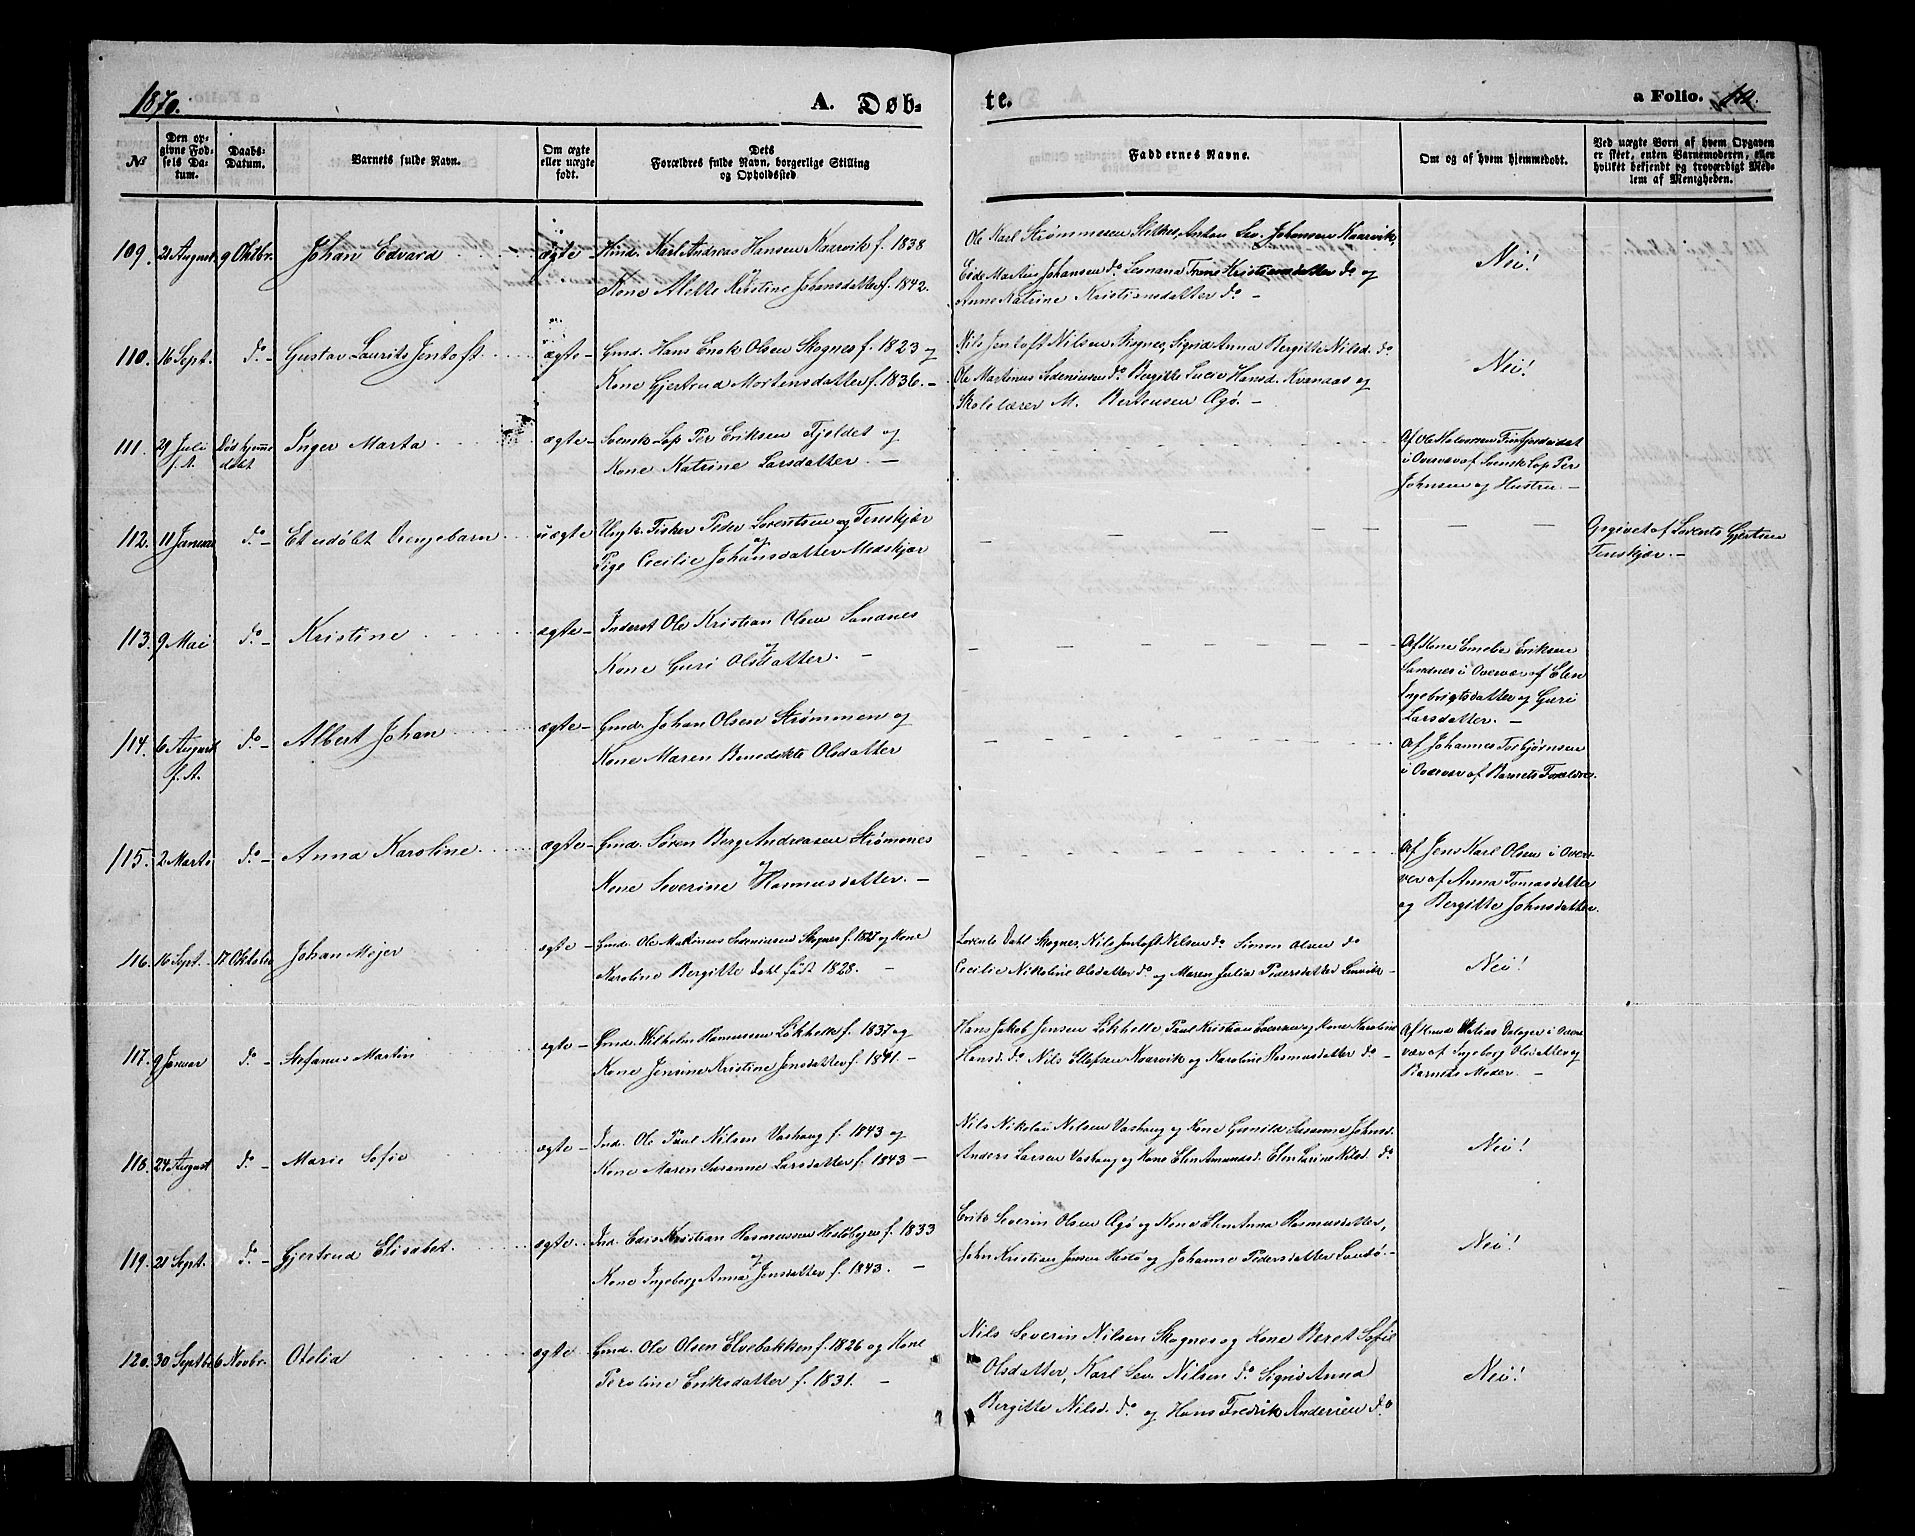 1870.
A. Døb-
te.
a Folio.
№
Den op-
givne Fød-
sels Da-
tum.
Daabs-
Datum.
Barnets fulde Navn.
Om ægte
eller uægte
født.
Dets
Forældres fulde Navn, borgerlige Stilling
og Opholdssted.
Faddernes Navne.
Om og af hvem hjemmedøbt.
Ved uægte Børn af hvem Opgaven
er skeet, enten Barnemoderen, eller
hvilket bekjendt og troværdigt Med-
lem af Menigheden.
109. 21 August 9 Oktbr. Johan Edvard ægte Karl Andreas Hansen Kaarvik f. 1838
Kone Alette Kristine Johansdatter f. 1842.
Ole Karl Strømmesen Johansen Kaarvik,
Martin Johansen do Kristiansdatter do og
Anne Katrine Kristiansdatter do –
Nei!
110. 16 Sept. do – Gustav Laurits Jentoft ægte – Gmd. Hans Enok Olsen Skognes f. 1823 og
Kone Gjertrud Mortensdatter f. 1836. –
Nils Jentoft Nilsen Skognes, Sigrid Anna Bergitte Nilsd. do
Ole Martinus Sedeniusen do Bergitte Lucie Hansd. Kvanaas og
Skolelærer M. Berteusen Ægø. –
Nei!
111. 29 Juli f. A. Død hjemme-
døbt Inger Marta ægte – Svensk Lap Per Eriksen Fjeldet og
Kone Katrine Larsdatter. –
Af Ole Halvorsen Finfjordeidet
i Overvær af Svensk Lap Per
Johnsen og Hustru. –
112. 11 Januar do – Et udøbt Drengebarn uægte Ungk. Fisker Peder Lorentsen Tenskjær og
Pige Cecilie Johansdatter Medskjær
Opgivet af Lorents Gjertsen
Tenskjær. –
113. 9 Mai do – Kristine ægte – Inderst Ole Kristian Olsen Sandnes og
Kone Guri Olsdatter. –
Af Kone Eriksen
Sandnes i Overvær af Elen
Ingebrigtsdatter og Guri
Larsdatter. –
114. 6 August f. A. do – Albert Johan ægte – Gmd. Johan Olsen Strømmen og
Kone Maren Benedikte Olsdatter
Af Johannes Torbjørnsen
i Overvær af Barnets Forældre.
115. 2 Marts do – Anna Karoline ægte – Gmd. Søren Berg Andreasen Strømnes og
Kone Severine Rasmusdatter. –
Af Jens Karl Olsen i Over-
vær af Anna Tomasdatter
og Bergitte Johnsdatter.
116. 16 Sept. 17 Oktober Johan Mejer ægte – Gmd. Ole Martinus Sedeniusen Skognes f. 1827 og Kone
Karoline Bergitte Dahl født 1828. –
Lorents Dahl Skognes, Nils Jentoft Nilsen do Simon Olsen do
Cecilie Nikoline Olsdatter do og Maren Julia Pedersdatter Lenvik –
Nei!
117. 9 Januar do – Stefanus Martin ægte – Gmd. Vilhelm Rasmussen Løkhelle f. 1837 og
Kone Jensine Kristine Jensdatter f. 1841. –
Hans Jakob Jensen Løkhelle Paul Kristian Iversen og Kone Karoline
Hansd. do Nils Ellefsen Kaarvik og Karoline Rasmusdatter do –
Af Knud Dalager i Over-
vær af Ingeborg Olsdatter og
Barnets Moder. –
118. 24 August do – Marie Sofie ægte – Ind. Ole Paul Nilsen Vashaug f. 1843 og
Kone Maren Susanne Larsdatter f. 1843 –
Nils Nikolai Nilsen Vashaug og Kone Gunild Susanna Johnsd.
Anders Larsen Vashaug og Kone Elen Amundsd. Elen Larine Nilsd. do
Nei!
119. 21 Sept. do – Gjertrud Elisabet ægte – Ind. Edis Kristian Rasmussen Hestøbogen f. 1833 og
Kone Ingeborg Anna Jensdatter f. 1843. –
Erik Severin Olsen Ægø og Kone Elen Anna Rasmusdatter,
John Kristian Jensen Hestø og Johanna Pedersdatter Sandø. –
Nei!
120. 30 Septbr 6 Novbr. Otelia ægte – Gmd. Ole Olsen Elvebakken f. 1826 og Kone
Peroline Eriksdatter f. 1831. –
Nils Severin Nilsen Skognes og Kone Beret Sofie
Olsdatter, Karl Sev. Nilsen do Sigrid Anna
Bergitte Nilsd. do og Hans Fredrik Andersen do
Nei!